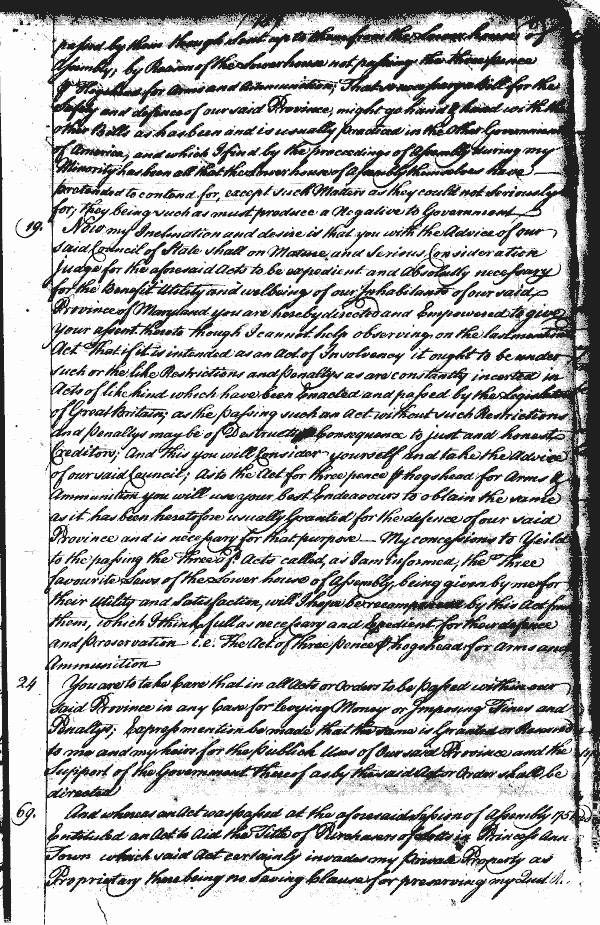 passed by them though Sent up to them from the Lower house of
Assembly, by Reason of the Lower house not passing the three pence
p Hogshead for Arms and Ammunition; That so necessary a Bill for the
Safety and defence of our said Province, might go hand & hand with the
other Bills as has been and is usually practiced in the Other Governments
of America, and which I find by the proceedings of Assembly during my
Minority has been all that the Lower house of Assembly themselves have
pretended to contend for, except such Matters as they could not Seriously
for; they being such as must produce a Negative to Government
19. Now my Inclination and desire is that you with the Advice of our
said Council of State shall on Mature and Serious Consideration
judge for the aforesaid Acts to be expedient and Absolutely necessary
for the Benefit Utility and welbeing of our Inhabitants of our said
Province of Maryland you are hereby directed and Empowered to give
Your assent thereto though I cannot help observing on the last
Act That if it is intended as an Act of Insolvency it ought to be under
such or the like Restrictions and Penaltys as are constantly incerted in
Acts of like kind which have been Enacted and passed by the Legislature
of Great Britain; as the passing such an Act without such Restrictions
and Penaltys may be of Destructive Consequence to just and honest
Creditors; And this you will Consider yourself and take the Advice
of our said Council; As to the Act for three pence p hogshead for Arms &
Ammunition you will use your best Endeavours to obtain the same
as it has been heretofore usually Granted for the defence of our said
Province and is necessary for that purpose My concessions to Yeild
to the passing the Three afd. Acts called, as I am informed, the Three
favourite Laws of the Lower house of Assembly, being given by me for
their Utility and Satisfaction, will I hope be recompenced by this Act from
them, which I think full as necessary and Expedient for their defence
and preservation i.e. The Act of three pence p hogshead for Arms and
Ammunition
24 You are to take Care that in all Acts or Orders to be passed within our
Said Province in any Case for levying Money or Imposing Fines and
Penaltys; Express mention be made that the same is Granted or Reserved
to me and my heirs for the publick Uses of Our said Province and the
Support of the Government thereof as by the said Act or Order shall be
directed
69. And whereas an Act was passed at the aforesaid Session of Assembly
Entituled an Act to Aid the Title of Purchasers of Lotts in Princess Ann
Town which said Act certainly invades my Private Property as
Proprietary there being no Saving Clause for preserving my Quit